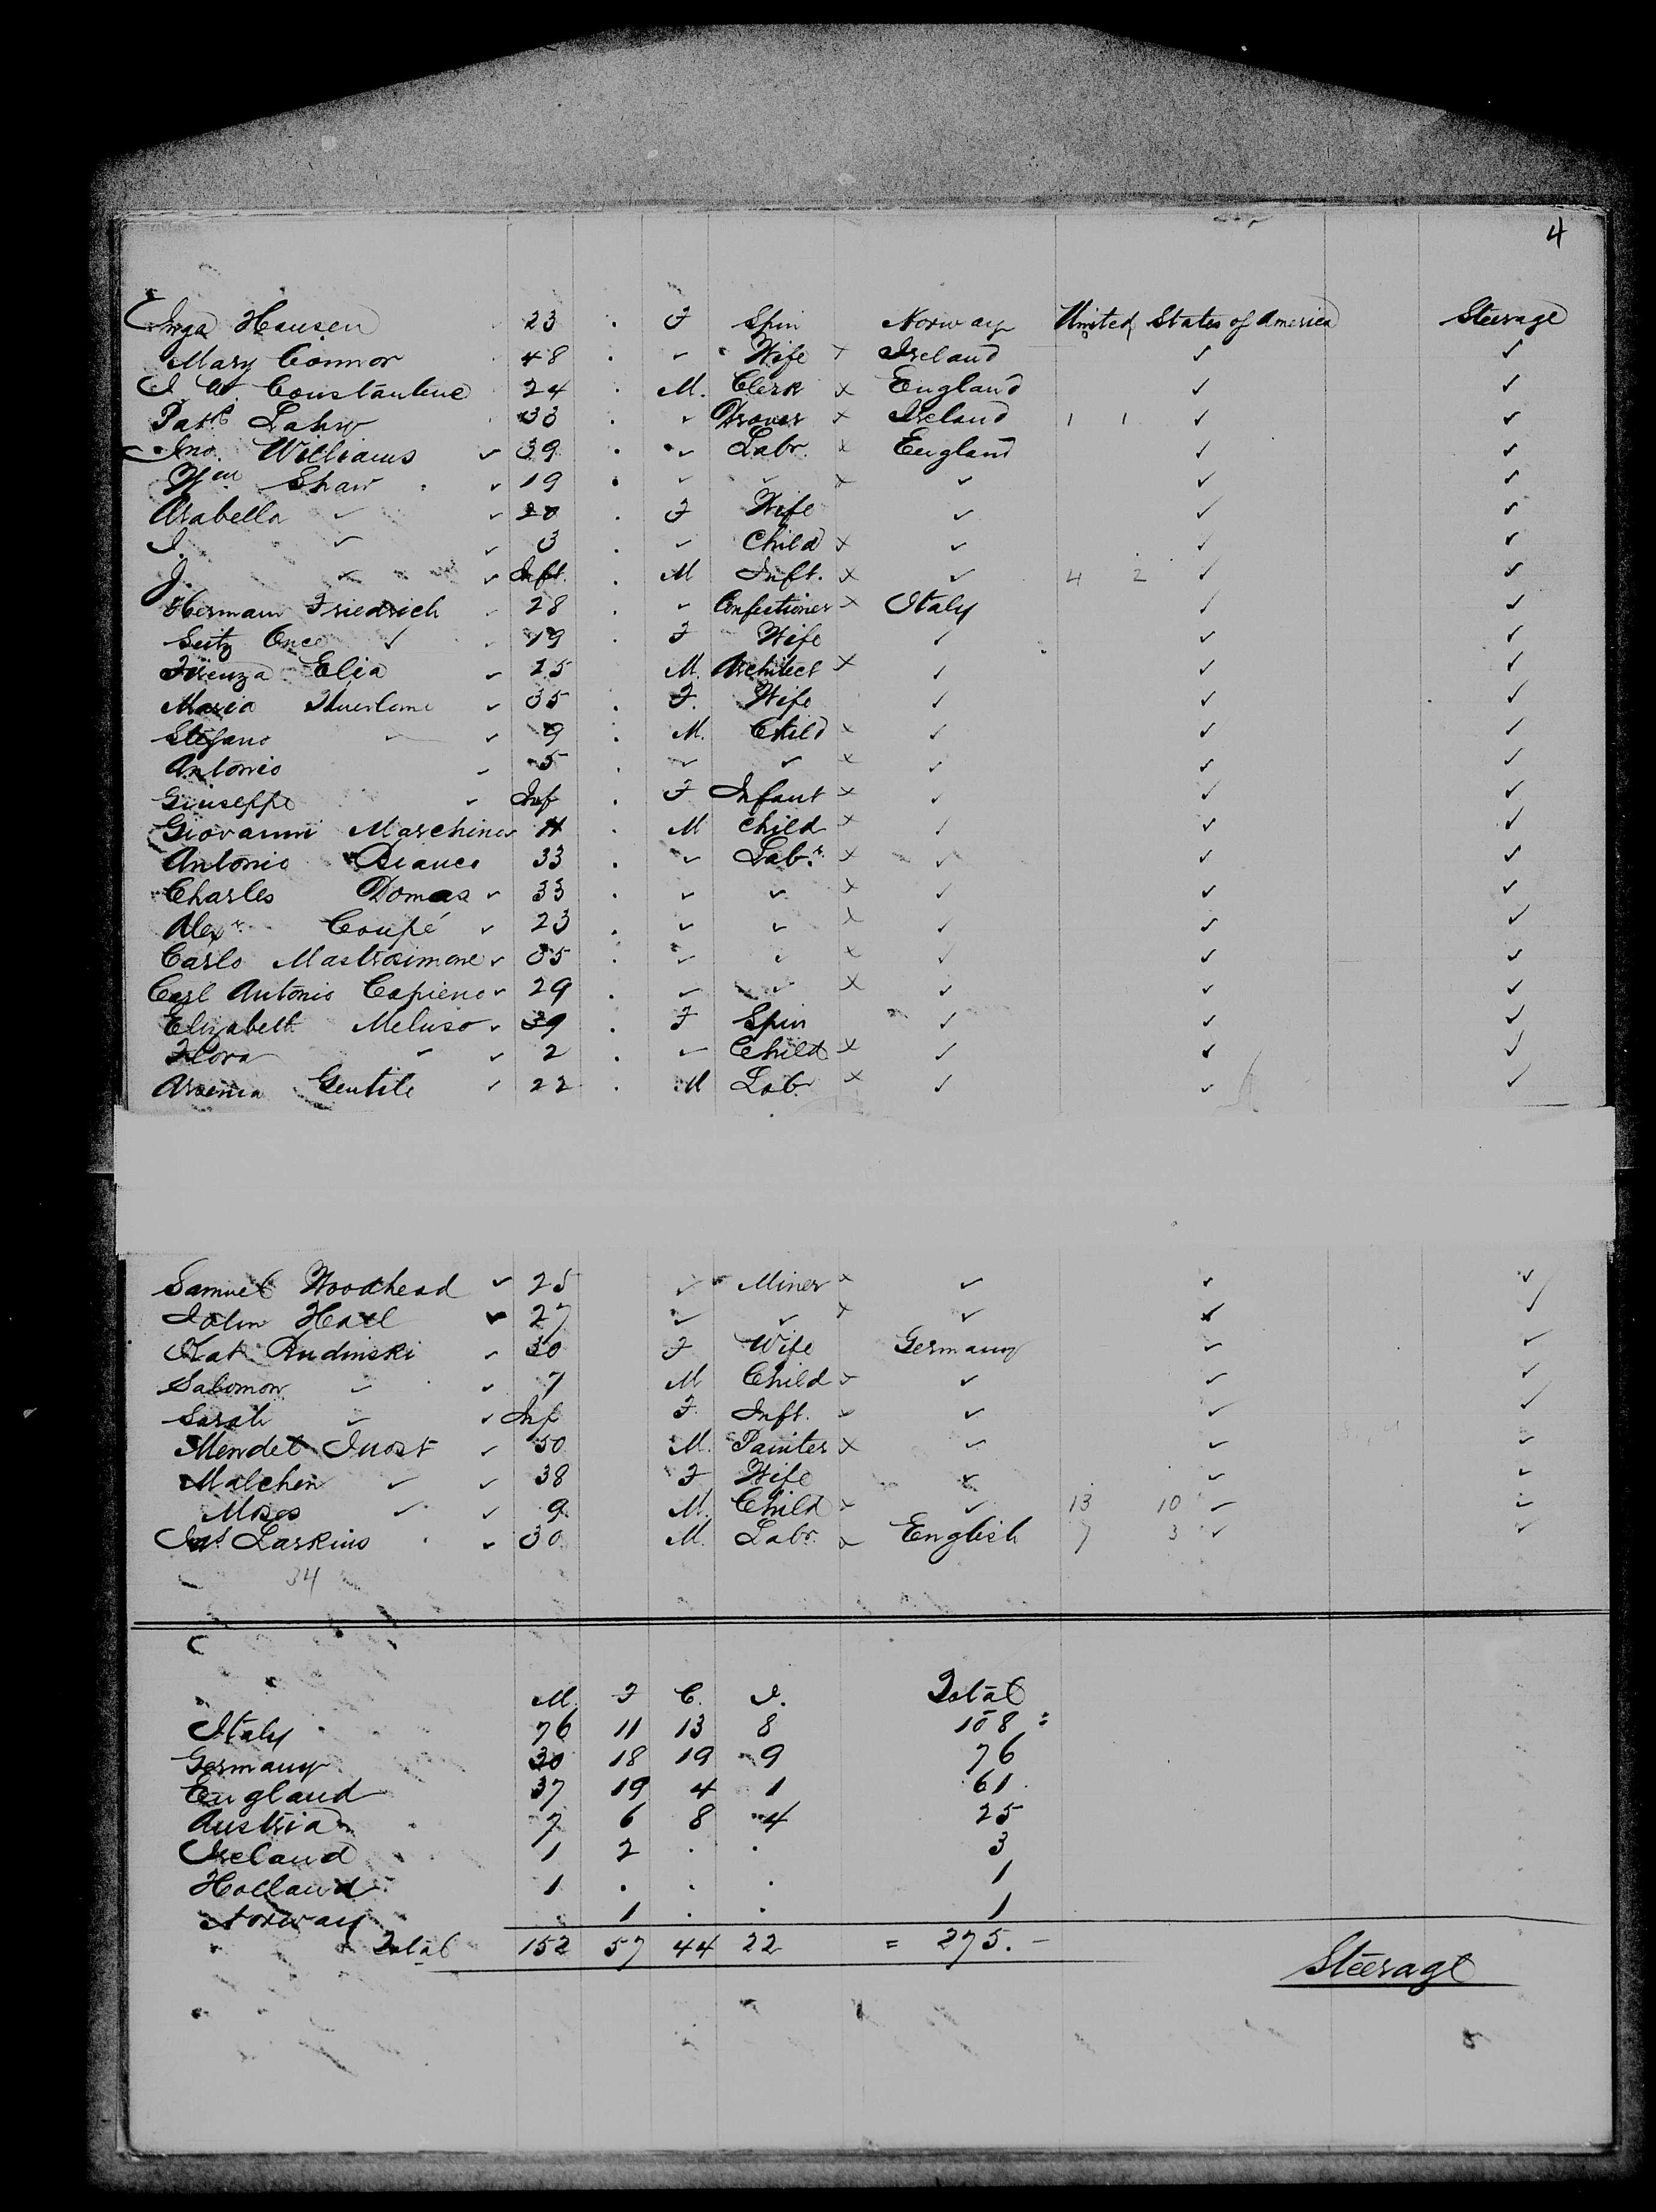 4
Inga Hansen 23 . F Spin Norway United States of America Steerage
Mary Connor 48 . ✓ Wife x Ireland ✓ ✓
J. W. Constantine 24 . M. Clerk x England ✓ ✓
Patk 33 . ✓ Drover x Ireland 1 1 ✓ ✓
Jno. Williams ✓ 39 . ✓ Labr. x England ✓ ✓
Wm Shaw ✓ 19 . ✓ ✓ x ✓ ✓ ✓
Arabella ✓ ✓ 20 . F Wife ✓ ✓ ✓
I. ✓ ✓ 3 . ✓ Child x ✓ ✓ ✓
J. ✓ ✓ Inft. . M Inft. x ✓ 4 2 ✓ ✓
Hermann Friedrich 28 . ✓ Confectioner x Italy ✓ ✓
✓ 19 . F Wife ✓ ✓ ✓
Firenza Elia ✓ 25 M. Architect x ✓ ✓ ✓
Maria ✓ 35 . F. Wife ✓ ✓ ✓
Stefano ✓ ✓ 9 . M. Child x ✓ ✓ ✓
Antonio ✓ 5 . ✓ ✓ x ✓ ✓ ✓
Giuseppe ✓ Inf . F Infant x ✓ ✓ ✓
Giovanni Marchino ✓ 11 . M Child x ✓ ✓ ✓
Antonio Bianco 33 . ✓ Labr. x ✓ ✓ ✓
Charles Domas ✓ 33 . ✓ ✓ x ✓ ✓ ✓
Alexr. Coupé ✓ 23 . ✓ ✓ x ✓ ✓ ✓
Carlo Mastrosimone ✓ 35 . ✓ ✓ x ✓ ✓ ✓
Carl Antonio Capieno ✓ 29 . ✓ ✓ x ✓ ✓ ✓
Elizabett Meluso ✓ 39 . F Spin ✓ ✓ ✓
Flora ✓ ✓ 2 . ✓ Child x ✓ ✓ ✓
Arsenia Gentile ✓ 22 . M Labr x ✓ ✓ ✓
Samuel Woodhead ✓ 25 ✓ Miner x ✓ ✓ ✓
John Hall ✓ 27 ✓ ✓ x ✓ ✓ ✓
Kat. Rudinski ✓ 30 F Wife Germany ✓ ✓
Salomon ✓ ✓ 7 M Child x ✓ ✓ ✓
Sarah ✓ ✓ Inf F. Inft. ✓ ✓ ✓ ✓
Mendel Juost ✓ 50 M. Painter x ✓ ✓ ✓
Malchen ✓ ✓ 38 F Wife ✓ ✓ ✓
Moses ✓ ✓ 9 M. Child x ✓ 13 10 ✓ ✓
Larkins ✓ 30 M. Labr. x English 7 3 ✓ ✓
34
M. F C. I. Total
Italy 76 11 13 8 108
Germany 30 18 19 9 76
England 37 19 4 1 61.
Austria 7 6 8 4 25
Ireland 1 2 . . 3
Holland 1 . . . 1
Norway . 1 . . 1
Total 152 57 44 22 = 275.-
Steerage